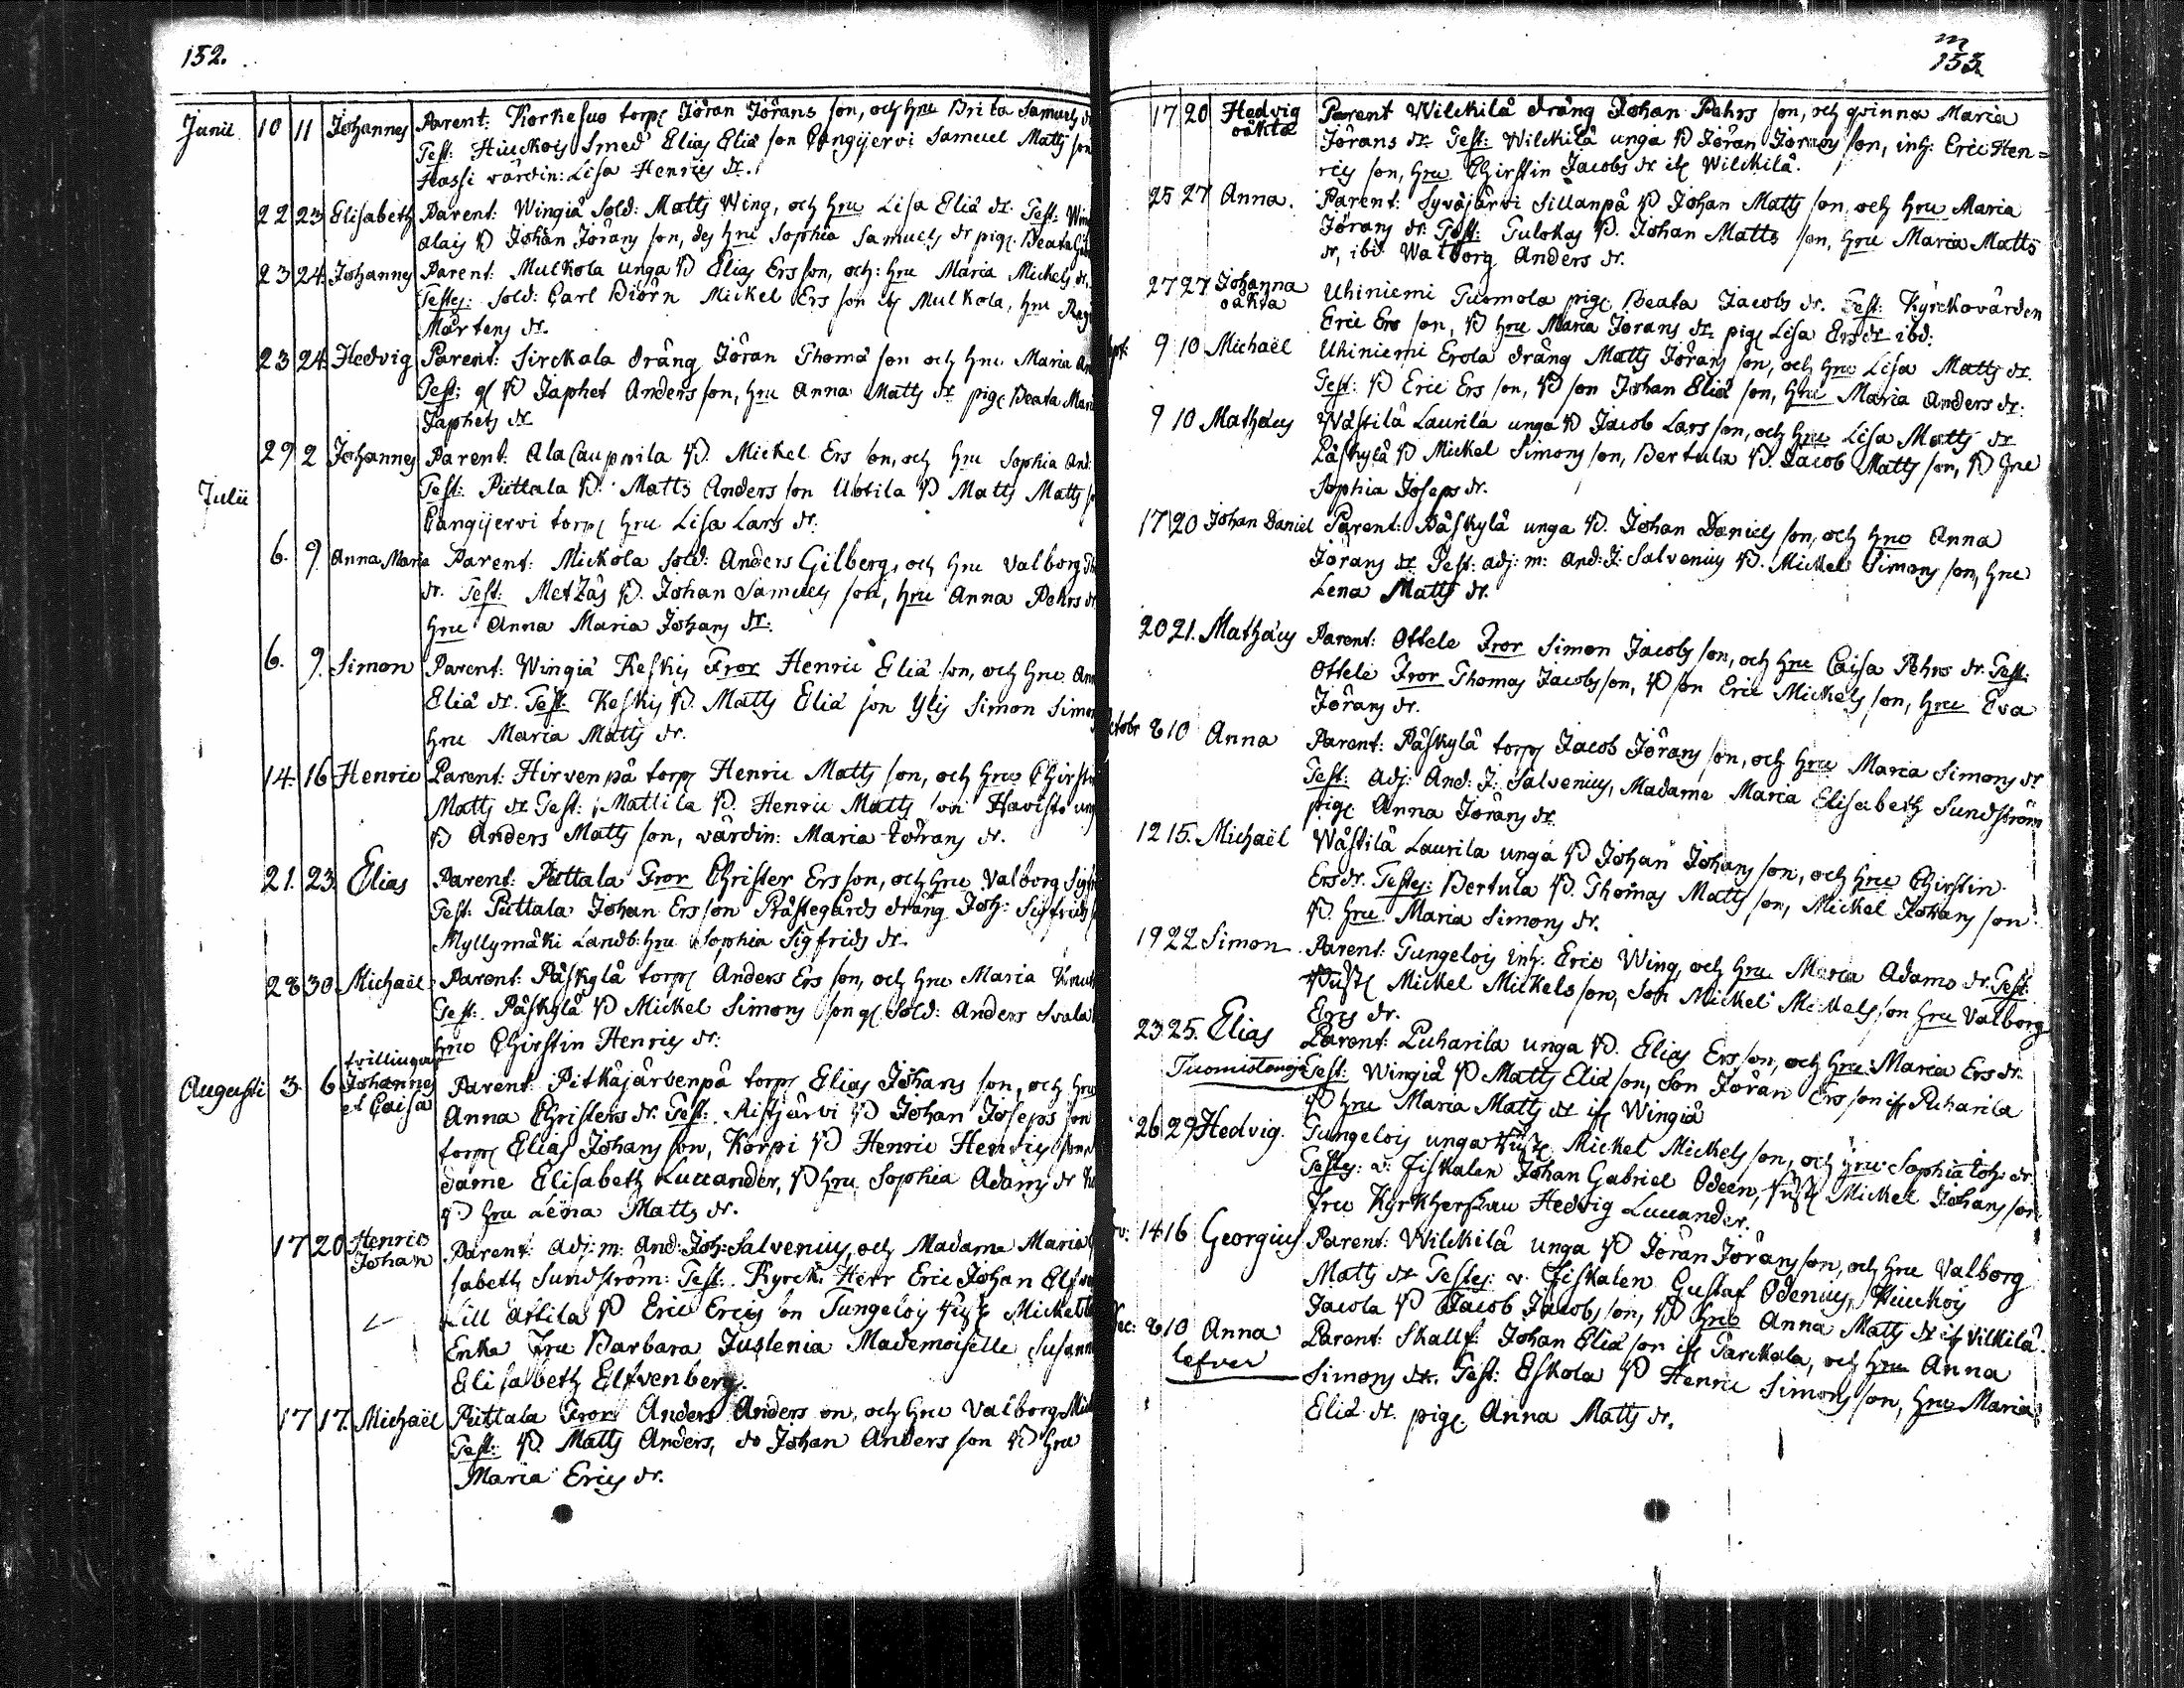 152.
Junii 10 11 Johannes Parent: Korkesuo torp: Jöran Jörans son, och hru Brita Samuels
Test: Hiuckois Smed Elias Eliæ son Cangijervi Samuel Matts son
Hassi värdin: Lisa Henrics dr.
22 23 Elisabeth Parent: Wingiä Sold: Matts Wing, och hru Lisa Eliæ dr. Test:
alais Johan Jörans son, des hru Sophia Samuels dr pig: Beata
23 24. Johannes Parent: Mulkola unga Elias Ers son, och: hru Maria Mickels dr.
Testes: Sold: Carl Biörn Mickel Ers son Mulkola, hru
Mårtens dr.
23 24. Hedvig Parent: Sirckala dräng Jöran Thomæ son och hru Maria
Test: Japhet Anders son, hru Anna Matts dr pig: Beata
Japhets dr
29 2 Johannes Parent: Ala Cauppila Mickel Ers son, och hru Sophia And:
Julii Test: Puttala Matts Anders son Uotila Matts Matts
Cangijervi torp: hru Lisa Lars dr.
6. 9 Anna Maria Parent: Mickola Sold: Anders Gilberg, och hru Valborg
dr. Test: Metzäs Johan Samuels son, hru Anna Pehrs dr
hru Anna Maria Johans dr.
6. 9. Simon Parent: Wingiä Keskis Fror Henric Eliæ son, och hru
Eliæ dr. Test. Keskis Matts Eliæ son Ylis Simon
hru Maria Matts dr.
14. 16 Henric Parent: Hirvenpä torp: Henric Matts son, och hru Chirstin
Matts dr Test: Mattila Henric Matts son Havisto
Anders Matts son, värdin: Maria Jörans dr.
21. 23. Elias Parent: Puttala Fror Christer Ers son, och hru Valborg
Test: Puttala Johan Ers son Prästegårds dräng Joh: Sigfrids
Myllymäki Landb: hru Sophia Sigfrids dr.
28 30 Michaël Parent: Päskylä torp: Anders Ers son, och hru Maria
Test: Päskylä Mickel Simons son Sold: Anders Svala
hru Chirstin Henrics dr:
tvillingar
Augusti 3. 6 Johannes Parent: Pitkäjärvenpä torp: Elias Johans son, och hru
et Caisa Anna Christers dr. Test: Ristjärvi Johan Joseps son
torp: Elias Johans son, Korpi Henric Henrics son,
dame Elisabeth Lucander, hru Sophia Adams dr
hru Lena Matts dr.
17 20 Henric Parent: adj: m: And: Joh: Salvenius, och Madame Maria
Johan sabeth Sundström: Test: Kyrck: Herr Eric Johan
Lill Attila Eric Ercis son Tungelois Mickel
Enka Fru Barbara Juslenia Mademoiselle Susanna
Elisabeth Elfvenberg.
17 17. Michaël Puttala Fror Anders Anders son, och hru Valborg
Test: Matts Anders, do Johan Anders son hru
Maria Erics dr.
153
17 20 Hedvig Parent Wilckilä dräng Johan Pehrs son, och qvinna Maria
oäkta Jörans dr Test: Wilckilä unga Jöran Jörans son, inh: Eric Hen=
rics son, hru Chirstin Jacobs dr Wilckilä.
25 27 Anna. Parent: Syväjärvi Sillanpä Johan Matts son, och hru Maria
Jörans dr. Test: Tulokas Johan Matts son, hru Maria Matts
dr, ibd: Walborg Anders dr.
27 27 Johanna Uhiniemi Tuomola pig: Beata Jacobs dr. Test: Kyrckovärden
oäkta Eric Ers son, hru Maria Jörans dr pig: Lisa Ers dr ibd:
9 10 Michaël Uhiniemi Erola dräng Matts Jörans son, och hru Lisa Matts dr.
Test: Eric Ers son, son Johan Eliæ son, hru Maria Anders dr.
9 10 Mathæus Wästilä Laurila unga Jacob Lars son, och hru Lisa Matts dr
Päskylä Mickel Simons son, Bertula Jacob Matts son, hru
Sophia Joseps dr.
17 20 Johan Daniel Parent: Päskylä unga Johan Daniels son, och hru Anna
Jörans dr Test: adj: m: And: J: Salvenius Mickel Simons son, hru
Lena Matts dr.
20 21. Mathæus Parent: Ottele Fror Simon Jacobs son, och hru Caisa Pehrs dr. Test:
Ottele Fror Thomas Jacobs son, son Eric Mickels son, hru Eva
Jörans dr.
8 10 Anna Parent: Päskylä torp: Jacob Jörans son, och hru Maria Simons dr
Test: Adj: And: J: Salvenius, Madame Maria Elisabeth Sundström
pig: Anna Jörans dr
12 15. Michaël Wästilä Laurila unga Johan Johans son, och hru Chirstin
Ers dr. Testes: Bertula Thomas Matts son, Mickel Johans son
hru Maria Simons dr.
19 22 Simon Parent: Tungelois Inh: Eric Wing, och hru Maria Adams dr. Test:
Mickel Mickels son, Son Mickel Mickels son hru Valborg
Ercs dr.
23 25. Elias Parent: Puharila unga Elias Ers son, och hru Maria Ers dr.
Test: Wingiä Matts Eliæ son, Son Jöran Ers son Puharila
hru Maria Matts dr Wingiä
26 29 Hedvig. Tungelois unga Mickel Mickels son, och hru Sophia Joh: dr.
Testes: v: Fiskalen Johan Gabriel Odeen, Mickel Johans son
Fru Kyrkherskan Hedvig Lucander.
14 16 Georgius Parent: Wilckilä unga Jöran Jörans son, och hru Valborg
Matts dr Testes: v. Fiskalen Gustaf Odenius, Hiuckois
Jacola Jacob Jacobs son, hru Anna Matts dr Vilkilä.
8 10 Anna Parent: Skallf: Johan Eliæ son Tarckala, och hru Anna
lefver Simons dr. Test: Eskola Henric Simons son, hru Maria
Eliæ dr. pig: Anna Matts dr.